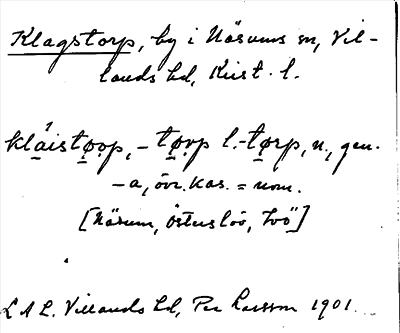 Klagstorp, by i Näsums sn, Vil-
lands hd, Krist. l.
kláistǫrp, -tǫrp l. -tǫrp, n., gen.
-a, övr. kas. = nom.
[Näsum, Östuslöv, Ivö]
L A L. Villands hd, Per Larsson 1901.